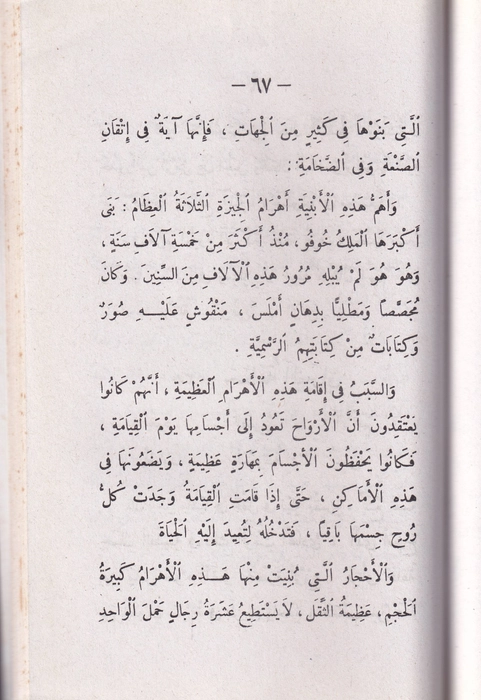 — ٦٧ —
الَّتِي بَنَوْهَا فِي كَثِيرٍ مِنَ الْجِهَاتِ ، فَإِنَّهَا آيَةٌ فِي إِتْقَانِ
الصَّنْعَةِ وَفِي الضَّخَامَةِ :
وَأَهَمُّ هَذِهِ الْأَبْنِيَةِ أَهْرَامُ الْجِيزَةِ الثَّلَاثَةُ الْعِظَامُ : بَنَى
أَكْبَرَهَا الْمَلِكُ خُوفُو ، مُنْذُ أَكْثَرَ مِنْ خَمْسَةِ آلَافِ سَنَةٍ ،
وَهُوَ هُوَ لَمْ يُبْلِهِ مُرُورُ هَذِهِ الْآلَافِ مِنَ السِّنِينَ . وَكَانَ
مُجَصَّصًا وَمَطْلِيًّا بِدِهَانٍ أَمْلَسَ ، مَنْقُوشٍ عَلَيْهِ صُوَرٌ
وَكِتَابَاتٌ مِنْ كِتَابَتِهِمُ الرَّسْمِيَّةِ .
وَالسَّبَبُ فِي إِقَامَةِ هَذِهِ الْأَهْرَامِ الْعَظِيمَةِ ، أَنَّهُمْ كَانُوا
يَعْتَقِدُونَ أَنَّ الْأَرْوَاحَ تَعُودُ إِلَى أَجْسَامِهَا يَوْمَ الْقِيَامَةِ ،
فَكَانُوا يَحْفَظُونَ الْأَجْسَامَ بِمَهَارَةٍ عَظِيمَةٍ ، وَيَضَعُونَهَا فِي
هَذِهِ الْأَمَاكِنِ ، حَتَّى إِذَا قَامَتِ الْقِيَامَةُ وَجَدَتْ كُلُّ
رُوحٍ جِسْمَهَا بَاقِيًا ، فَتَدْخُلُهُ لِتُعِيدَ إِلَيْهِ الْحَيَاةَ
وَالْأَحْجَارُ الَّتِي بُنِيَتْ مِنْهَا هَذِهِ الْأَهْرَامُ كَبِيرَةُ
الْحَجْمِ ، عَظِيمَةُ الثِّقَلِ ، لَا يَسْتَطِيعُ عَشَرَةُ رِجَالٍ حَمْلَ الْوَاحِدِ